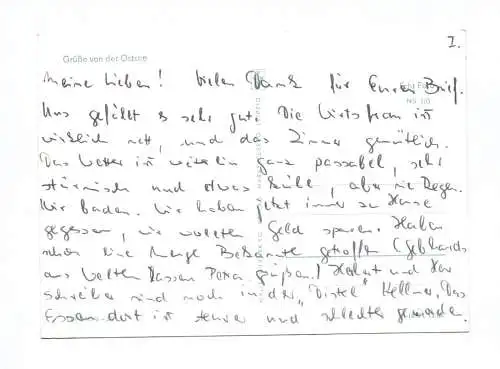 I.
Grüße von der Ostsee
Meine Lieben! Vielen Dank für Euren Brief.
Uns gefällt es sehr gut. Die Wirtsfrau ist
wirklich nett, und das Zimmer gemütlich.
Das Wetter ist weiterhin ganz passabel, sehr
stürmisch und etwas kühl, aber nie Regen.
Wir baden. Wir haben jetzt immer zu Hause
gegessen, wir wollten Geld sparen. Haben
schon eine Menge Bekannte getroffen (Gebhards
aus Welten lassen Petra grüßen!) und Herr
Schreiber sind noch in der "Distel" Kellner. Das
Essen dort ist teurer und schlechter geworden.